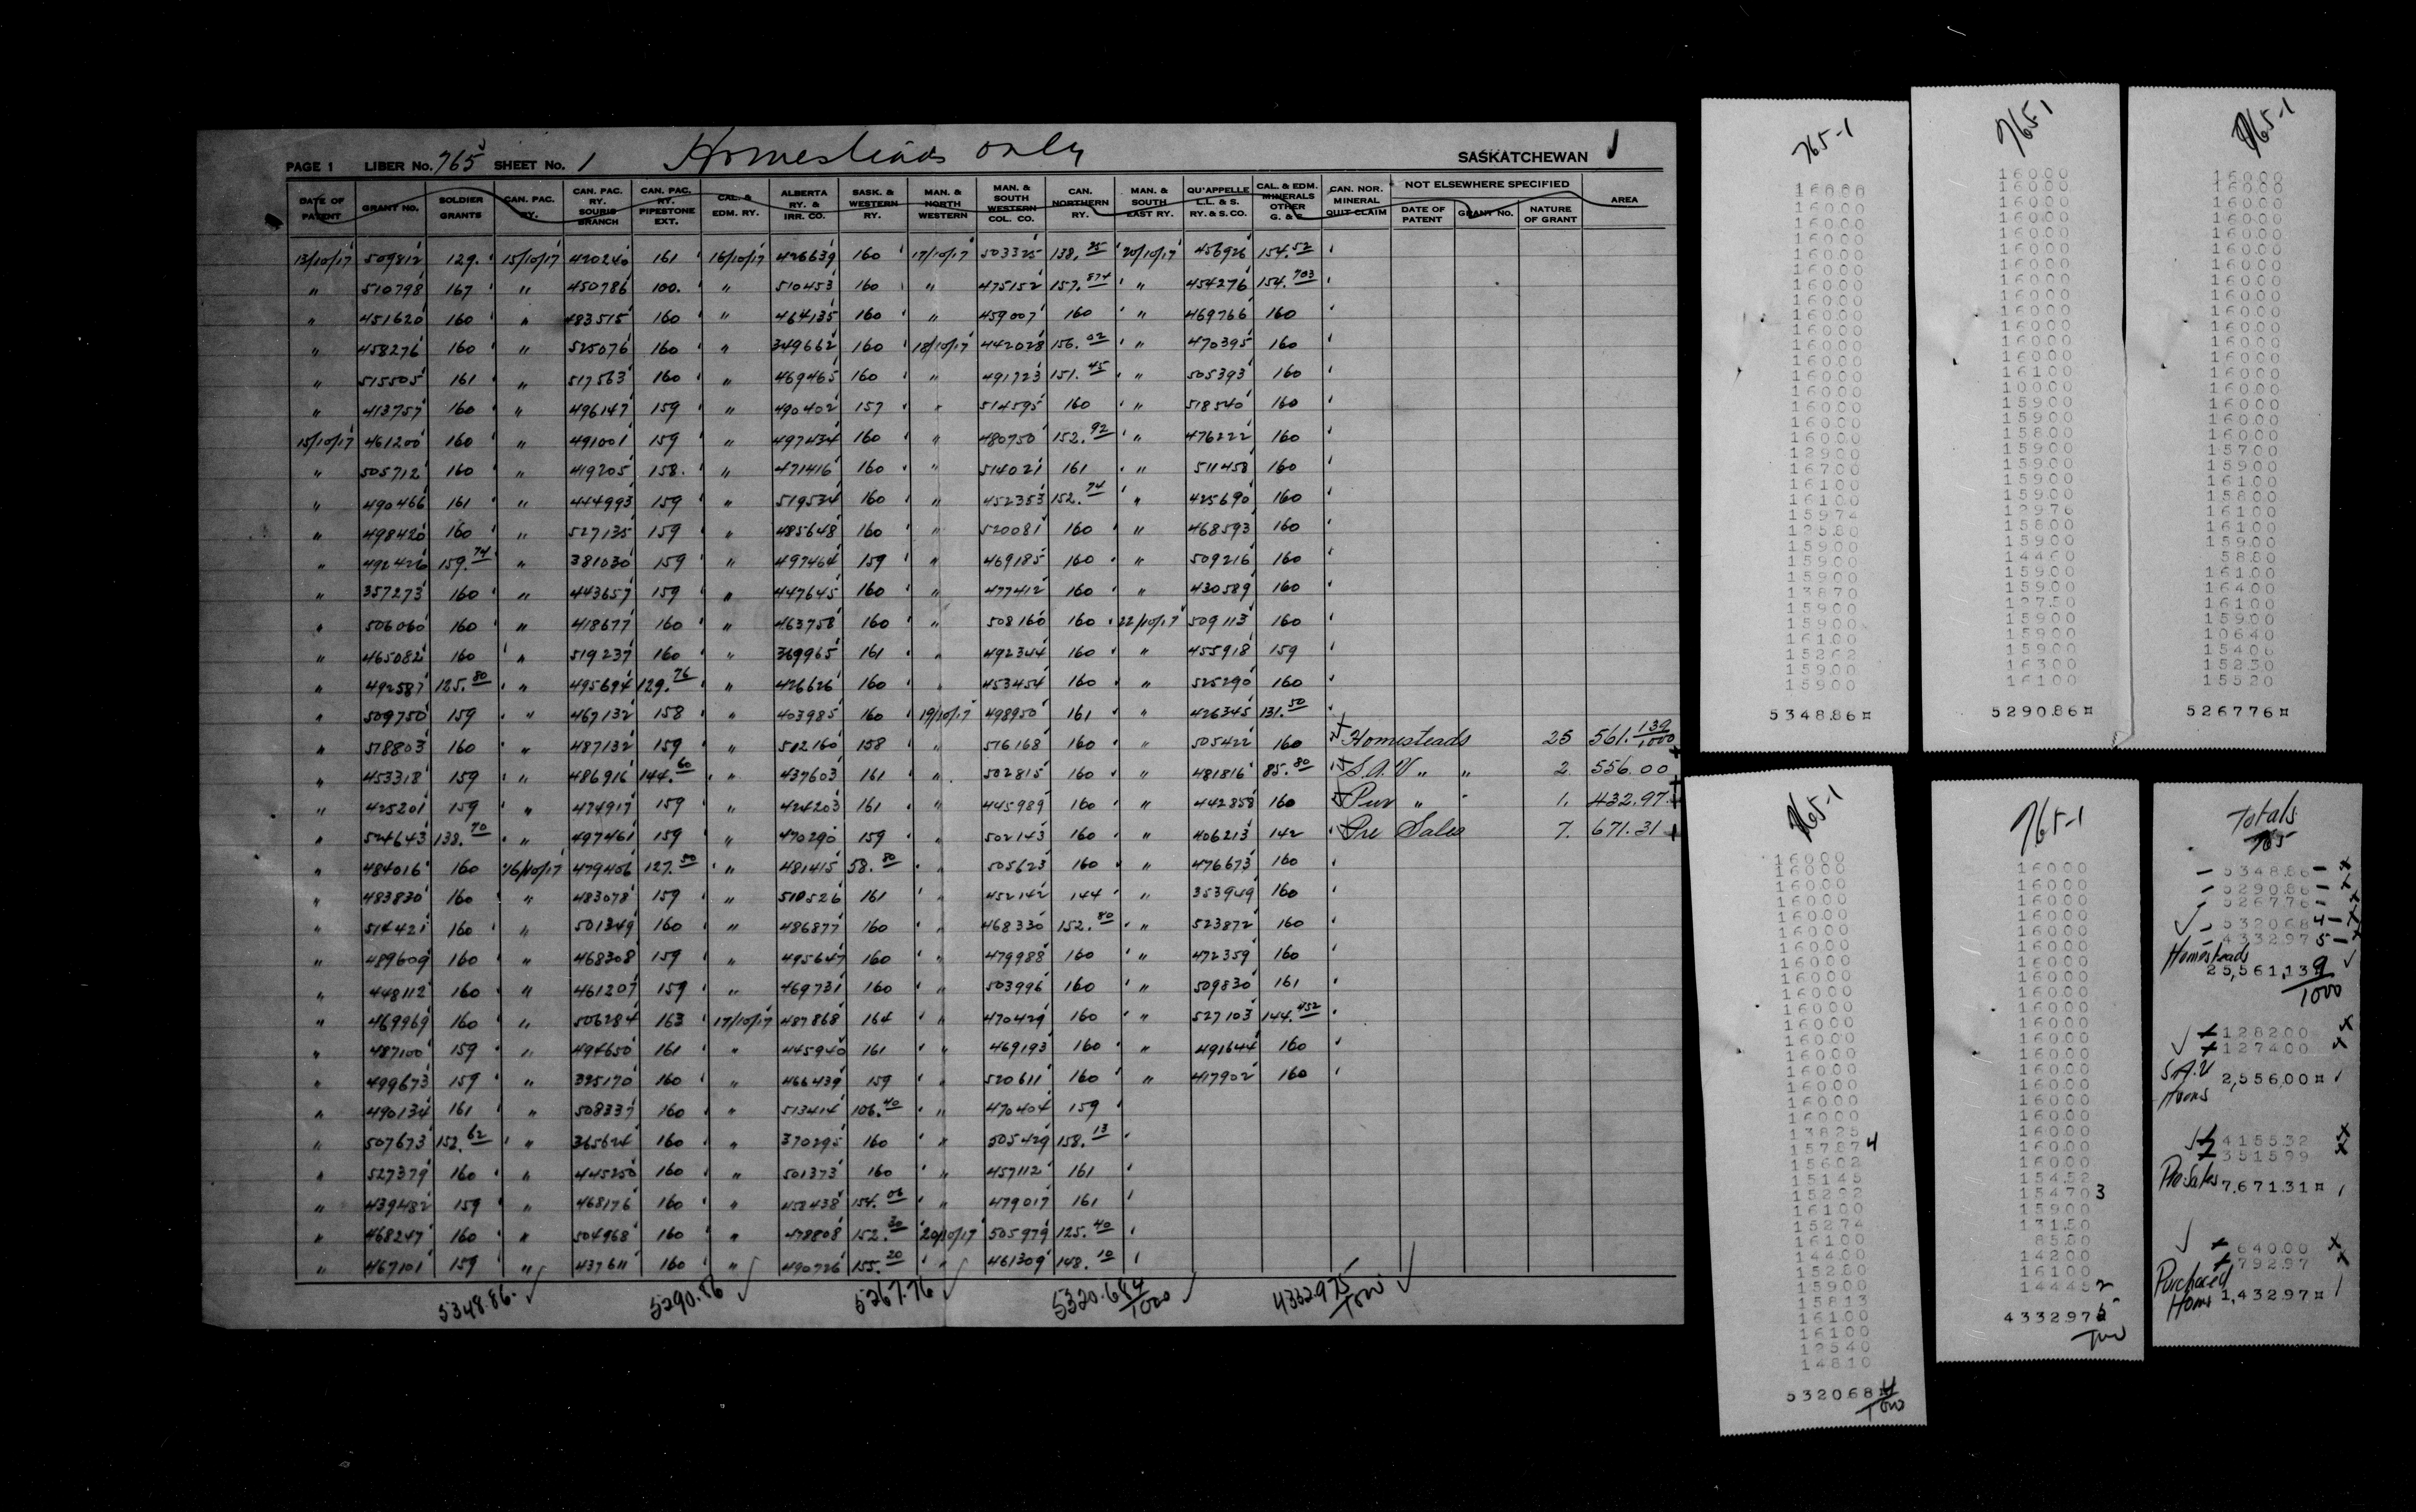 Homesteads only
PAGE 1 LIBER No. 765 SHEET No. 1 SASKATCHEWAN 1
DATE OF PATENT GRANT NO. SOLDIER GRANTS CAN. PAC. RY. CAN. PAC. RY. SOURIS BRANCH CAN. PAC. RY. PIPESTONE EXT. CAL. & EDM. RY. ALBERTA RY. & IRR. CO. SASK. & WESTERN RY. MAN. & NORTH WESTERN MAN. & SOUTH WESTERN COL. CO. CAN. NORTHERN RY. MAN. & SOUTH EAST RY. QU'APPELLE L.L. & S. RY. & S. CO. CAL. & EDM. MINERALS OTHER G. & CAN. NOR. MINERAL QUIT CLAIM NOT ELSEWHERE SPECIFIED DATE OF PATENT GRANT NO. NATURE OF GRANT AREA
13/10/17 509812 129. 15/10/17 420240 161 16/10/17 426639 160 17/10/17 503325 138.25 20/10/17 456926 154.52
" 510798 167 " 450786 100. " 510453 160 " 475152 157.874 " 454276 154.703
" 451620 160 " 483515 160 " 464135 160 " 459007 160 " 469766 160
" 458276 160 " 525076 160 " 349662 160 18/10/17 442028 156.02 " 470395 160
" 515505 161 " 517563 160 " 469465 160 " 491723 151.45 " 505393 160
" 413757 160 " 496147 159 " 490402 157 " 514595 160 " 518540 160
15/10/17 461200 160 " 491001 159 " 497434 160 " 480750 152.92 " 476222 160
" 505712 160 " 419205 158. " 471416 160 " 514021 161 " 511458 160
" 490466 161 " 444993 159 " 519534 160 " 452353 152.74 " 425690 160
" 498420 160 " 527135 159 " 485648 160 " 520081 160 " 468593 160
" 492426 159.74 " 381030 159 " 497464 159 " 469185 160 " 509216 160
" 357273 160 " 443657 159 " 447645 160 " 477412 160 " 430589 160
" 506060 160 " 418677 160 " 463758 160 " 508160 160 22/10/17 509113 160
" 465082 160 " 519237 160 " 369965 161 " 492344 160 " 455918 159
" 492587 125.80 " 495694 129.76 " 426626 160 " 453454 160 " 525290 160
" 509750 159 " 467132 158 " 403985 160 19/10/17 498950 161 " 426345 131.50
" 518803 160 " 487132 159 " 502160 158 " 516168 160 " 505422 160 Homesteads 25 561.139/1000
" 453318 159 " 486916 144.60 " 437603 161 " 502815 160 " 481816 85.80 S.A.V " " 2. 556.00
" 425201 159 " 474917 159 " 424203 161 " 445989 160 " 442858 160 Pur " " 1. 432.97
" 524643 138.70 " 497461 159 " 470290 159 " 502143 160 " 406213 142 Pre Sales 7. 671.31
" 484016 160 16/10/17 479406 127.50 " 481415 58.80 " 505623 160 " 476673 160
" 483830 160 " 483078 159 " 510526 161 " 452142 144 " 353949 160
" 514421 160 " 501349 160 " 486877 160 " 468330 152.80 " 523872 160
" 489609 160 " 468308 159 " 495647 160 " 479988 160 " 472359 160
" 448112 160 " 461207 159 " 469731 160 " 503996 160 " 509830 161
" 469969 160 " 506284 163 17/10/17 487868 164 " 470429 160 " 527103 144.452
" 487100 159 " 494650 161 " 445940 161 " 469193 160 " 491644 160
" 499673 159 " 395170 160 " 466439 159 " 520611 160 " 417902 160
" 490134 161 " 508337 160 " 513414 106.40 " 470404 159
" 507673 152.62 " 365624 160 " 370295 160 " 505429 158.13
" 527379 160 " 445250 160 " 501373 160 " 457112 161
" 439482 159 " 468176 160 " 458438 154.06 " 479017 161
" 468247 160 " 504968 160 " 478808 152.30 20/10/17 505979 125.40
" 467101 159 " 437611 160 " 490726 155.20 " 461309 148.10
5348.86 5290.86 5267.76 5320.684/1000 4332.975/1000
765-1
16000
16000
16000
16000
12900
16700
16100
16100
15974
12580
15900
15900
13870
15900
15900
16100
15262
15900
15900
5348.86
765-1
16000
16000
16100
10000
15900
15900
15800
15900
15900
15900
12976
15800
15900
14460
15900
15900
12750
15900
15900
15900
16300
16100
5290.86
765-1
16000
16000
15700
15900
16100
15800
16100
16100
15900
5880
16100
16400
16100
15900
10640
15406
15230
15520
5267.76
765-1
16000
16000
13825
157874
15602
15145
15292
16100
15274
16100
14400
15280
15900
15813
16100
16100
12540
14810
5320.684/1000
765-1
16000
16000
15452
154703
15900
13150
8580
14200
16100
144452
4332.975/1000
Totals
765
5348.86
5290.86
5267.76
5320.684
4332.975
Homesteads
25,561,139/1000
1282.00
1274.00
S.A.V 2,556.00
Homs
4155.32
3515.99
Pre Sales 7,671.31
640.00
792.97
Purchased
Homs 1,432.97